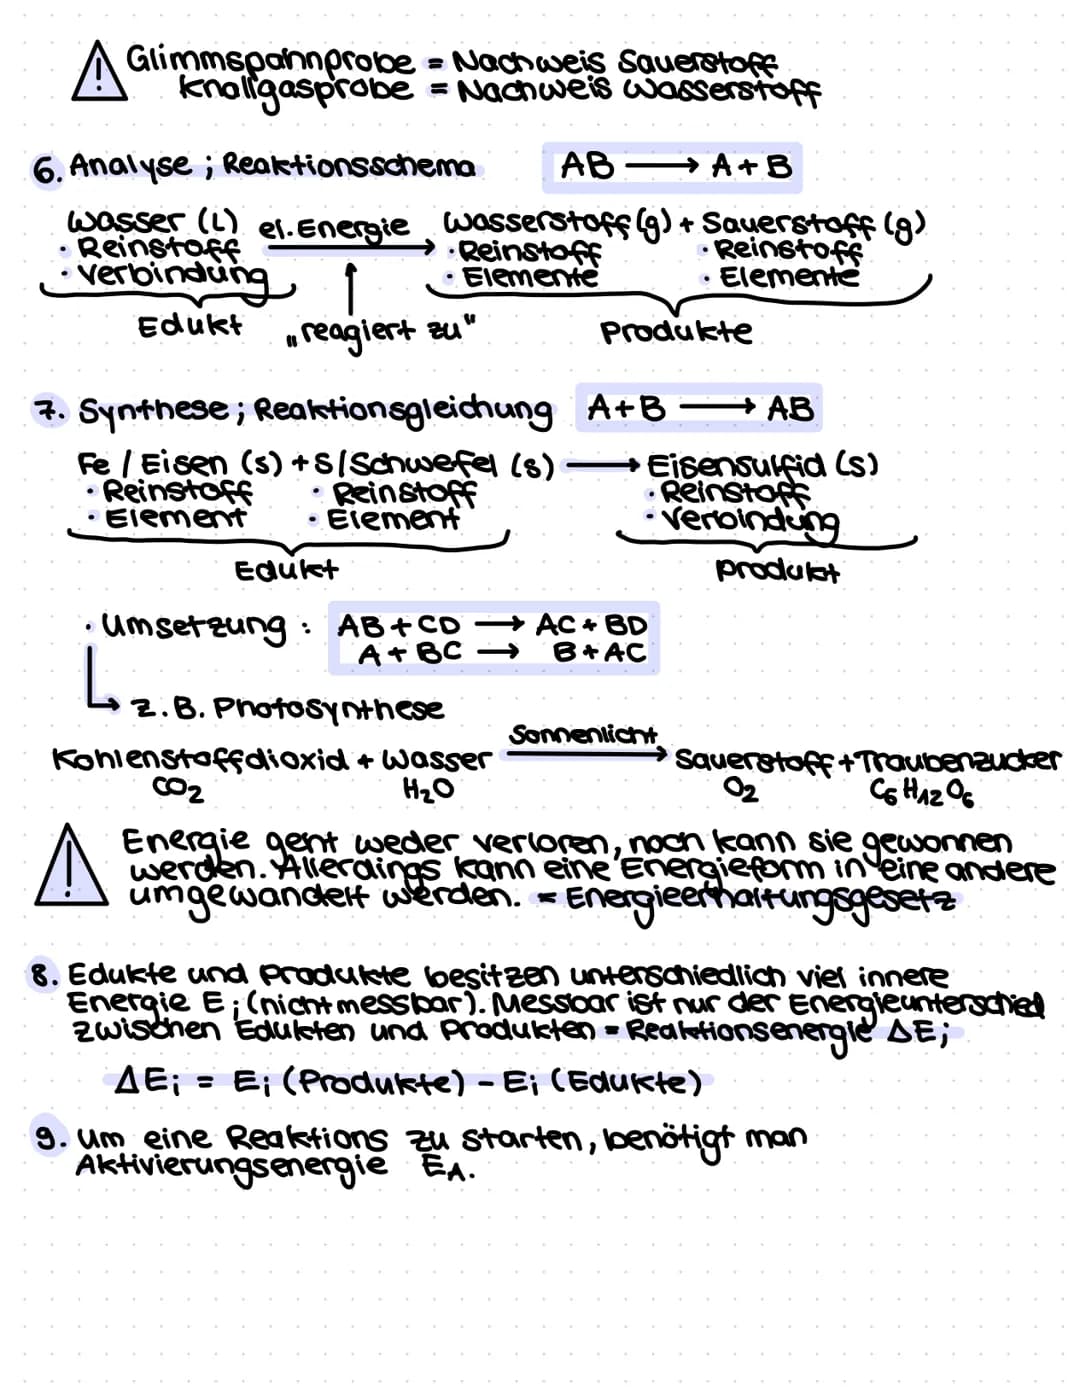 Glimmspahnprobe = Nachweis Sauerstoff
Knallgasprobe = Nachweis Wasserstoff
6. Analyse ; Reaktionsschema AB → A + B
Wasser (L) el. Energie Wasserstoff (g) + Sauerstoff (g)
· Reinstoff · Reinstoff · Reinstoff
· Verbindung · Elemente · Elemente
Edukt „reagiert zu" Produkte
7. Synthese ; Reaktionsgleichung A + B → AB
Fe / Eisen (s) + S / Schwefel (s) → Eisensulfid (s)
· Reinstoff · Reinstoff · Reinstoff
· Element · Element · Verbindung
Edukt Produkt
· Umsetzung : AB + CD → AC + BD
A + BC → B + AC
z. B. Photosynthese
Sonnenlicht
Kohlenstoffdioxid + Wasser → Sauerstoff + Traubenzucker
CO₂ H₂O O₂ C₆H₁₂O₆
Energie geht weder verloren, noch kann sie gewonnen
werden. Allerdings kann eine Energieform in eine andere
umgewandelt werden. = Energieerhaltungsgesetz
8. Edukte und Produkte besitzen unterschiedlich viel innere
Energie Eᵢ (nicht messbar). Messbar ist nur der Energieunterschied
zwischen Edukten und Produkten = Reaktionsenergie ΔEᵢ
ΔEᵢ = Eᵢ (Produkte) - Eᵢ (Edukte)
9. Um eine Reaktions zu starten, benötigt man
Aktivierungsenergie E_A.